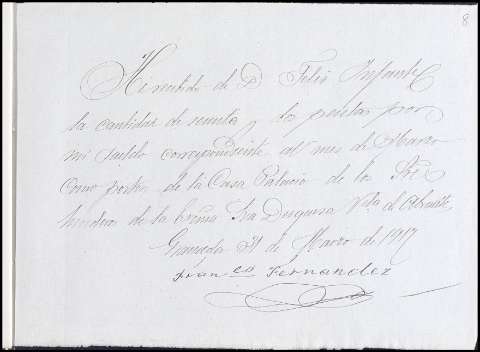 8
He recibido de D. Felix Infante
la cantidad de sesenta y dos pesetas por
mi sueldo correspondiente al mes de Marzo
como portero de la Casa Palacio de los Sres
herederos de la Exma Sra Duquesa Vda de Abrante
Granada 31 de Marzo de 1917
Franco Fernandez